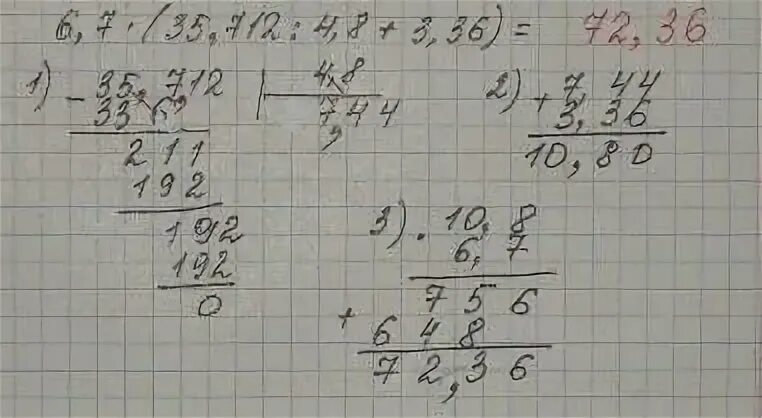 6,7 · (35,712 : 4,8 + 3,36) = 72,36
1) - 35,712 | 4,8
33 6 7,44
211
192
192
192
0
2) + 7,44
3,36
10,80
3) · 10,8
6,7
+ 756
648
72,36